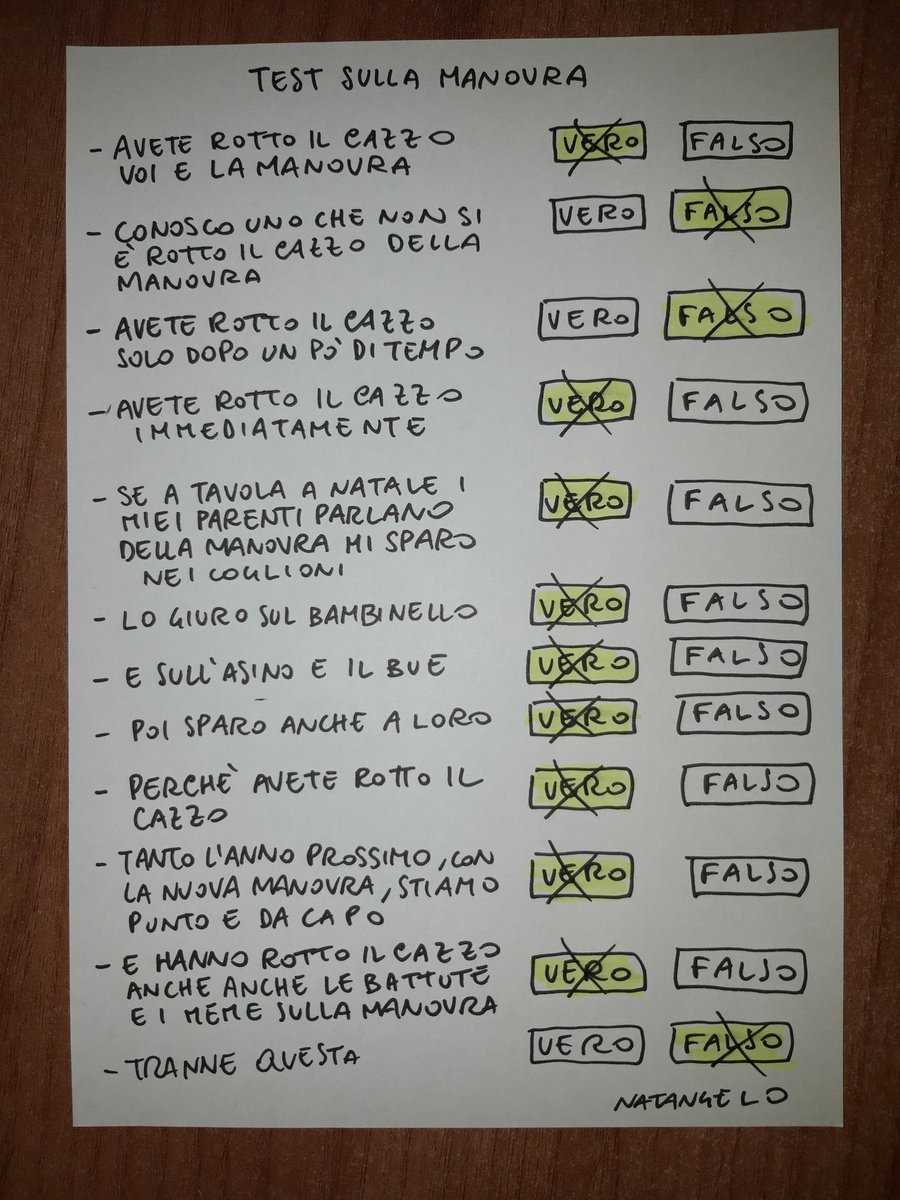 TEST SULLA MANOVRA
- AVETE ROTTO IL CAZZO VERO FALSO
VOI E LA MANOVRA
- CONOSCO UNO CHE NON SI VERO FALSO
È ROTTO IL CAZZO DELLA
MANOVRA
- AVETE ROTTO IL CAZZO VERO FALSO
SOLO DOPO UN PÒ DI TEMPO
- AVETE ROTTO IL CAZZO VERO FALSO
IMMEDIATAMENTE
- SE A TAVOLA A NATALE I VERO FALSO
MIEI PARENTI PARLANO
DELLA MANOVRA MI SPARO
NEI COGLIONI
- LO GIURO SUL BAMBINELLO VERO FALSO
- E SULL'ASINO E IL BUE VERO FALSO
- POI SPARO ANCHE A LORO VERO FALSO
- PERCHÈ AVETE ROTTO IL VERO FALSO
CAZZO
- TANTO L'ANNO PROSSIMO, CON VERO FALSO
LA NUOVA MANOVRA, STIAMO
PUNTO E DA CAPO
- E HANNO ROTTO IL CAZZO VERO FALSO
ANCHE ANCHE LE BATTUTE
E I MEME SULLA MANOVRA
- TRANNE QUESTA VERO FALSO
NATANGELO